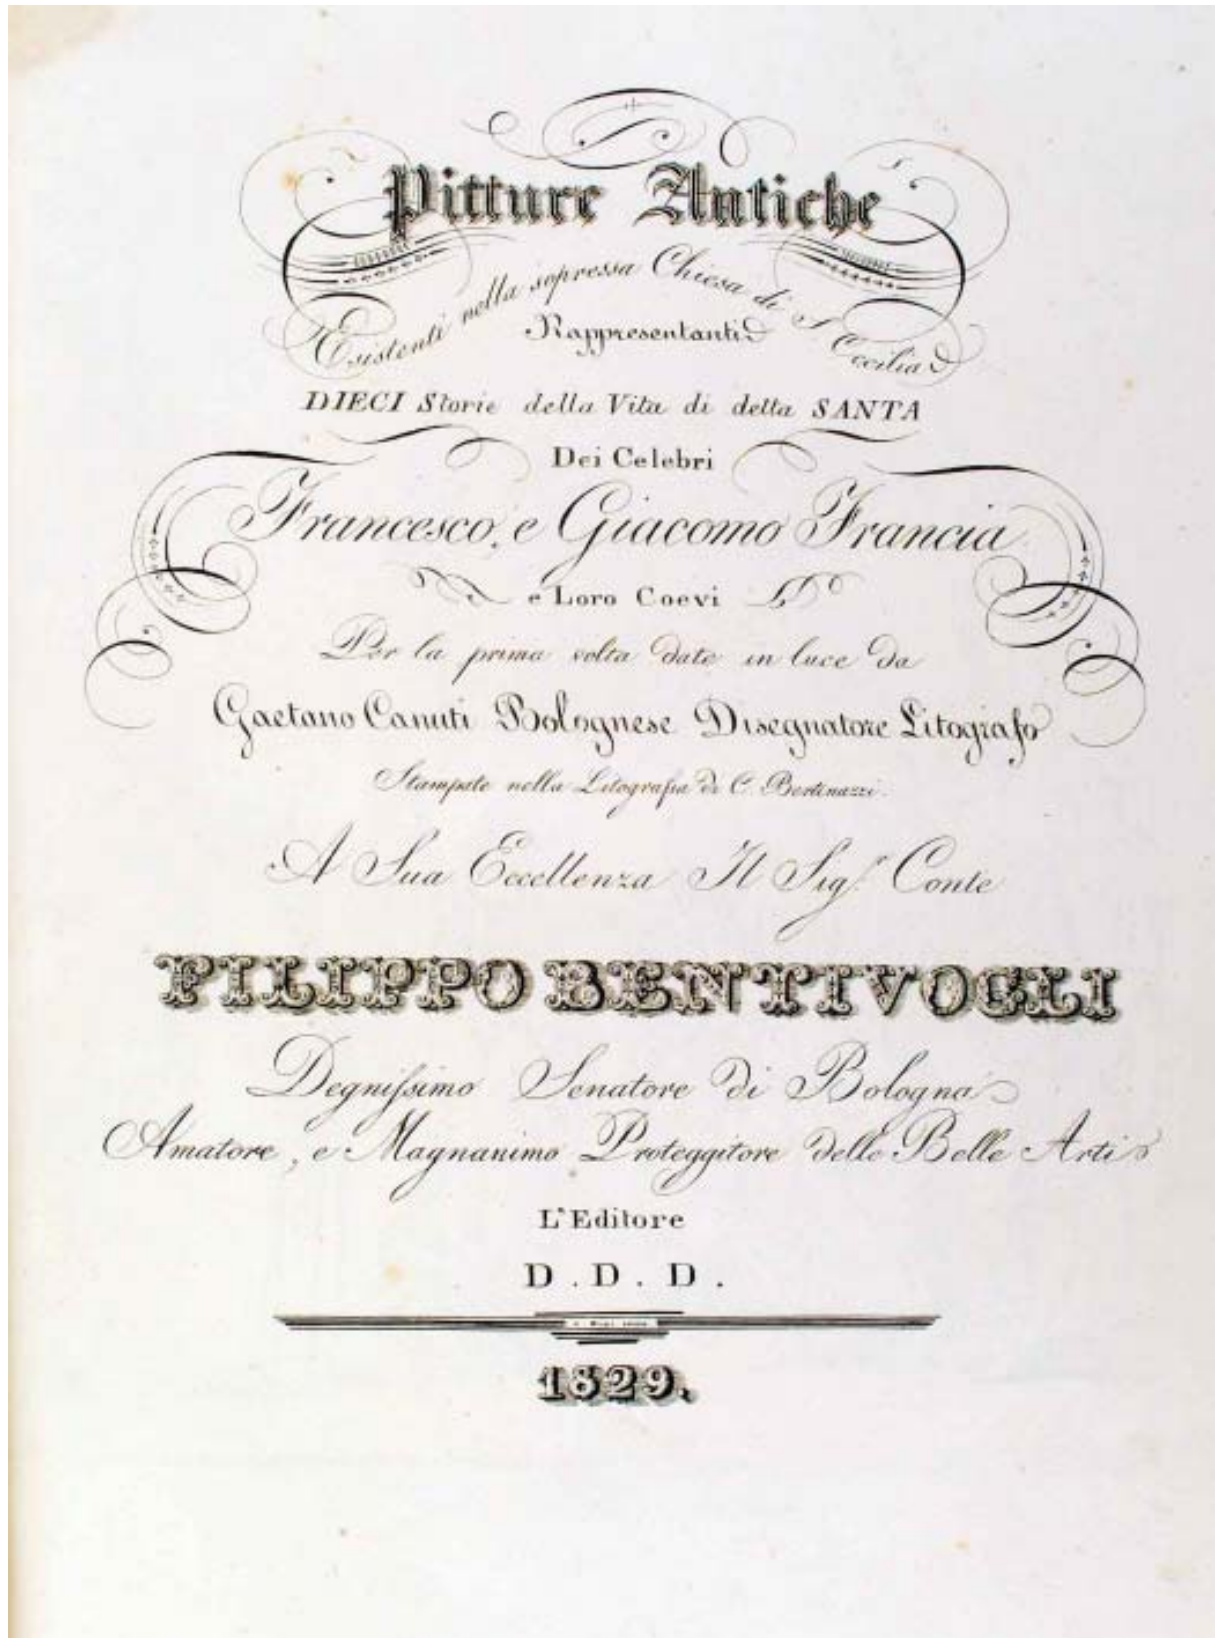 Pitture Antiche
Esistenti nella sopressa Chiesa di S Cecilia
Rappresentanti
DIECI Storie della Vita di detta SANTA
Dei Celebri
Francesco, e Giacomo Francia
e Loro Coevi
Per la prima volta date in luce da
Gaetano Canuti Bolognese Disegnatore Litografo
Stampate nella Litografia di C. Bertinazzi.
A Sua Eccellenza Il Sig.r Conte
FILIPPO BENTIVOGLI
Degnissimo Senatore di Bologna
Amatore, e Magnanimo Proteggitore delle Belle Arti
L'Editore
D. D. D.
1829.